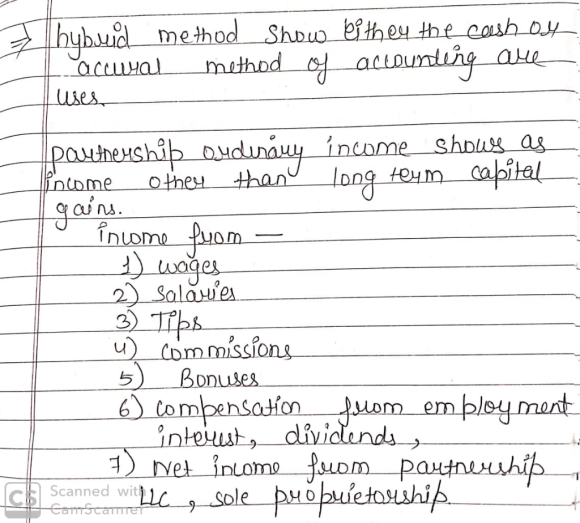 ⇒ hybrid method show Either the cash or
accural method of accounting are
uses.
partnership ordinary income shows as
income other than long term capital
gains.
income from —
1) wages
2) Salaries
3) Tips
4) commissions
5) Bonuses
6) compensation from employment
interest, dividends,
7) Net income from partnership
LLC, sole proprietorship.
CS Scanned with
CamScanner